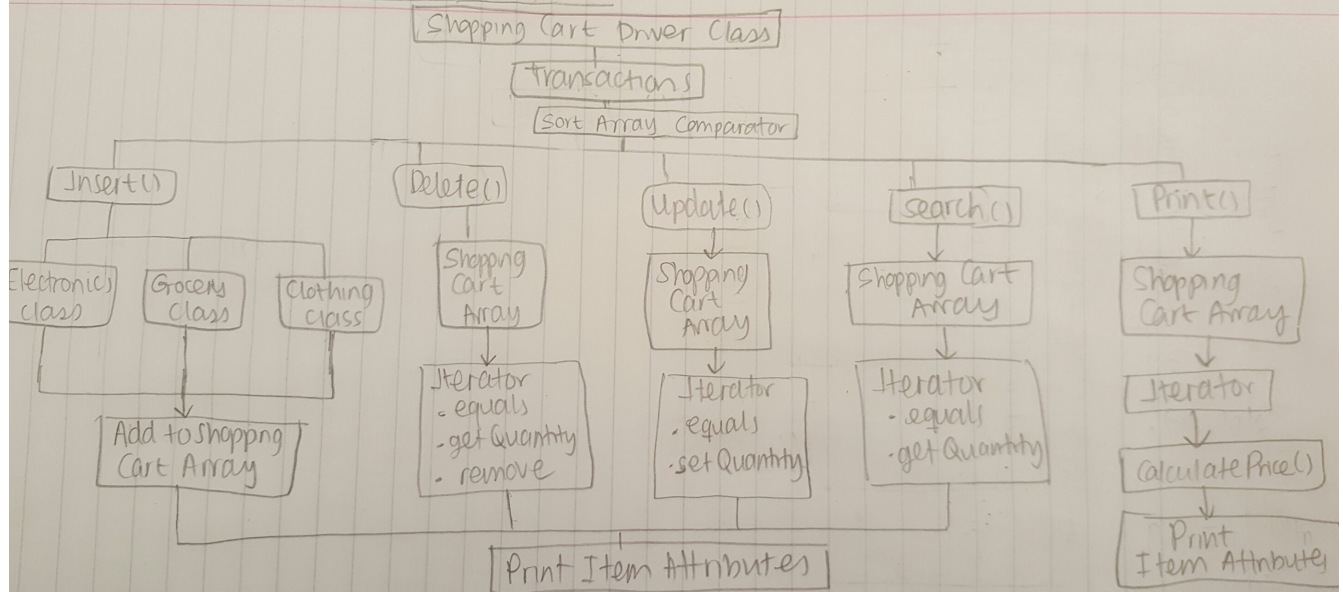 Shopping Cart Driver Class
Transactions
Sort Array Comparator
Insert()
Delete()
Update()
Search()
Print()
Electronics
Class
Grocery
Class
Clothing
Class
Add to Shoppng
Cart Array
Shoppng
Cart
Array
Iterator
. equals
. getQuantity
. remove
Shopping
Cart
Array
Iterator
. equals
. setQuantity
Shopping Cart
Array
Iterator
. equals
. getQuantity
Shopping
Cart Array
Iterator
CalculatePrice()
Print
Item Attributes
Print Item Attributes